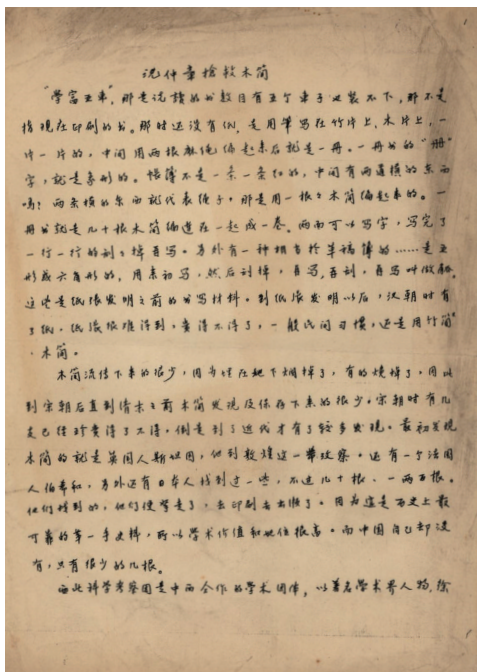 沈仲章抢救木简
“學富五車”,那是说讀的书数目有五个車子也装不下,那不是
指现在印刷的书。那时还没有纸,是用筆写在竹片上、木片上,一
片一片的,中间用两根麻绳编起来后就是一册。一册书的“册”
字,就是象形的。
那是用一根之木简编起来的。一
册书就是几十根木简编造在一起成一卷。两面可以写字,写完了
一行一行的刮了掉再写。另外有一种相当于草稿簿的……是五
形或六角形的,用来初写,然后刮掉,再写,再刮,再写叫做觚。
这些是纸张发明之前的书写材料。到纸张发明以后,汉朝时有
了纸。纸张很难得到,贵得不得了,一般民间习惯,还是用竹简
、木简。
木简流传下来的很少,因为埋在地下烂掉了,有的烧掉了,所以
到宋朝后直到清末之前木简发现及保存下来的很少。宋朝时有几
支已经珍贵得了不得,倒是到了近代才有了较多发现。最初发现
木简的就是英国人斯坦因,他到敦煌这一带考察。还有一个法国
人伯希和,另外还有日本人找到这一些,不过几十根、一两百根。
他们找到的,他们便拿走了,去印刷去出版了。因为这是历史上最
可靠的第一手史料,所以学术价值和地位很高。而中国自己却没
有,只有很少的几根。
西北科学考察团是中西合作的学术团体,以著名学术界人物,徐